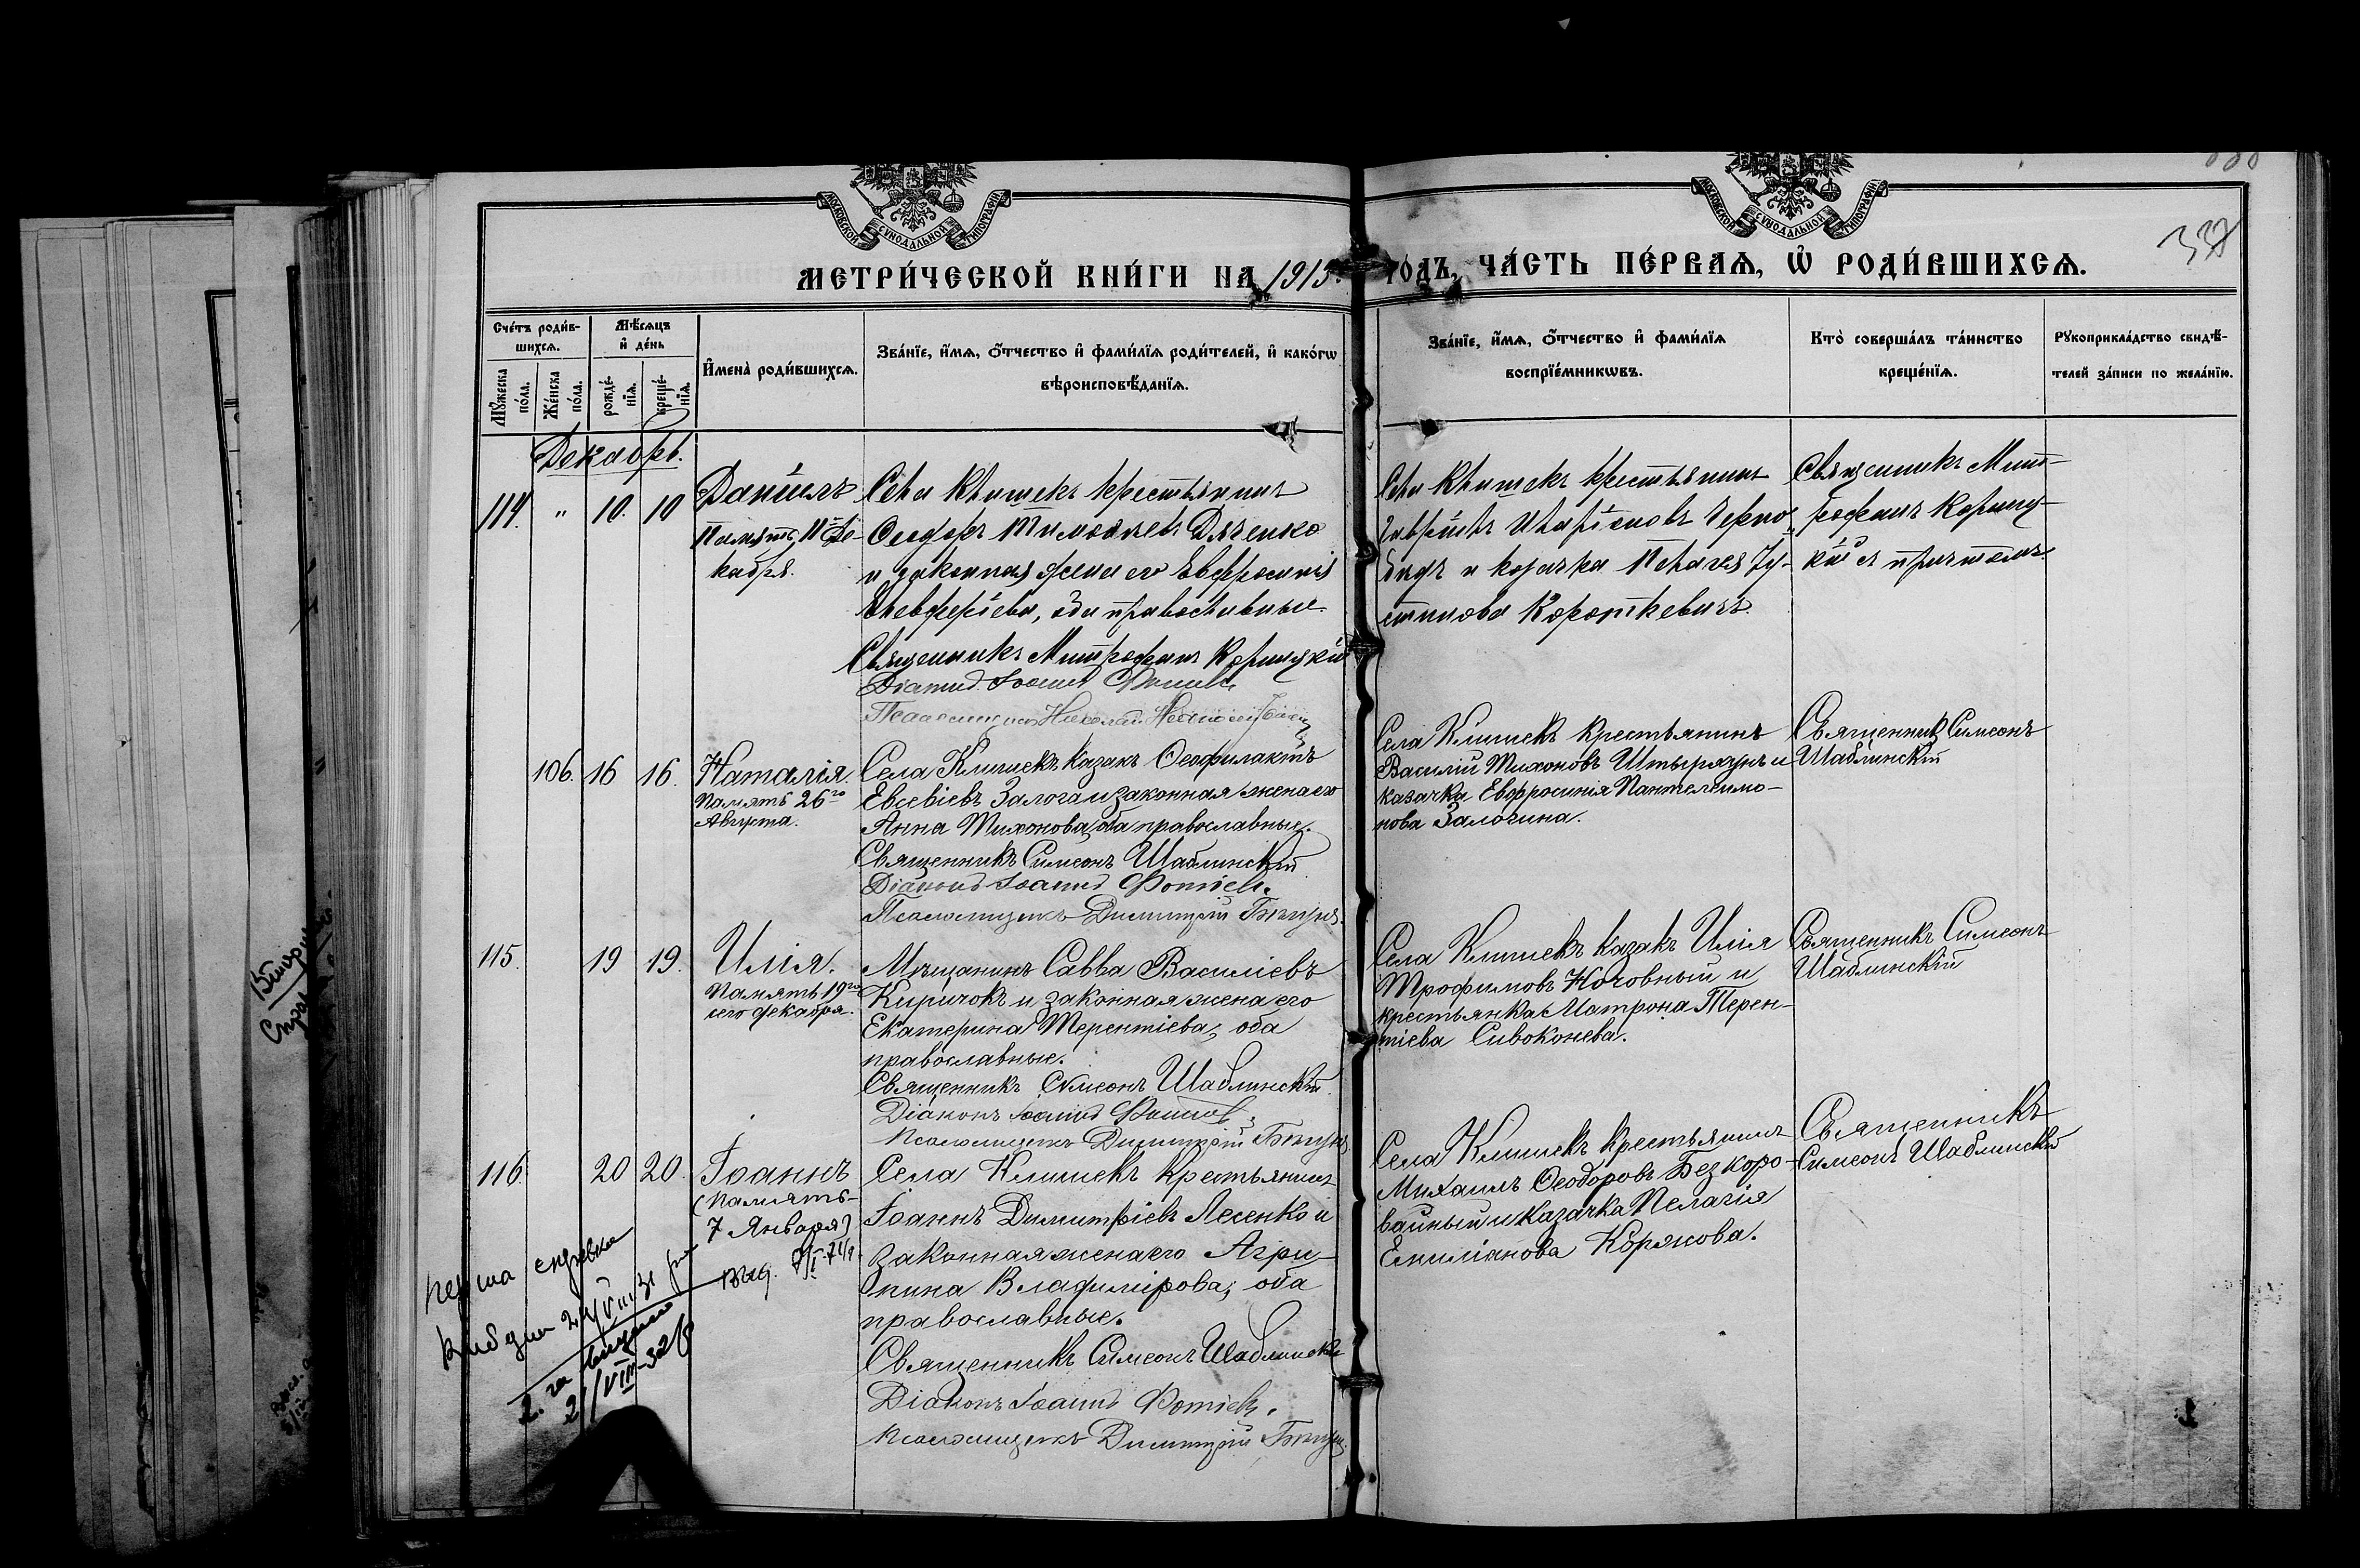 МОСКОВСКОЙ СѴНОДАЛЬНОЙ ТИПОГРАФІИ
МОСКОВСКОЙ СѴНОДАЛЬНОЙ ТИПОГРАФІИ
МЕТРИ́ЧЕСКОЙ КНИ́ГИ НА 1915 ГО́ДЪ, ЧА́СТЬ ПЕ́РВАѦ, Ѡ҆ РОДИ́ВШИХСѦ.
Сче́тъ роди́в-
шихсѧ.
Мѣ́сѧцъ
и҆ де́нь
Мꙋ́жеска
по́ла.
Же́нска
по́ла.
рожде́-
нїѧ.
креще́-
нїѧ.
И҆мена̀ роди́вшихсѧ.
Зва́нїе, и҆́мѧ, ѻ҆́тчество и҆ фами́лїѧ роди́телей, и҆ како́гѡ
вѣроисповѣ́данїѧ.
Зва́нїе, и҆́мѧ, ѻ҆́тчество и҆ фами́лїѧ
воспрїе́мникѡвъ.
Кто̀ соверша́лъ та́инство
креще́нїѧ.
Рꙋкоприкла́дство свидѣ́-
телей за́писи по жела́нїю.
Декабрь.
114. " 10. 10
Данiилъ
Память 11 Де-
кабря.
Села Клишекъ крестьянинъ
Ѳеодоръ Тимоѳеевъ Дяченко
и законная жена его Евфросинія
Елевферіева, оба православные.
Священникъ Митрофанъ Корицкій
Діаконъ Іоаннъ Фотіевъ
Псаломщикъ Николай
Села Клишекъ крестьянинъ
Гавріилъ Иларіоновъ Черно-
бидъ и козачка Пелагея Іу-
стинова Короткевичъ
Священникъ Мит-
рофанъ Кориц-
кій съ причтомъ.
106. 16 16.
Наталія.
Память 26го
Августа.
Села Клишекъ казакъ Ѳеофилактъ
Евсевіевъ Залога и законная жена его
Анна Тихонова, оба православные.
Священникъ Симеонъ Шаблинскій
Діаконъ Іоаннъ Фотіевъ.
Псаломщикъ Димитрій Бѣгунъ.
Села Клишекъ крестьянинъ
Василій Тихоновъ Штыряунъ и
казачка Евфросинія Пантелеимо-
нова Залогина.
Священникъ Симеонъ
Шаблинскій
115. 19 19.
Илія.
Память 19го
сего декабря.
Мѣщанинъ Савва Василіевъ
Киричокъ и законная жена его
Екатерина Терентіева, оба
православные.
Священникъ Симеонъ Шаблинскій
Діаконъ Іоаннъ Фотіевъ.
Псаломщикъ Димитрій Бѣгунъ
Села Клишекъ казакъ Илія
Трофимовъ Ночовный и
крестьянка Матрона Терен-
тіева Сивоконева.
Священникъ Симеонъ
Шаблинскій
116. 20 20.
Іоаннъ
(Память
7 Января)
Села Клишекъ крестьянинъ
Іоаннъ Димитріевъ Лесенко и
законная жена его Агри-
пина Владимірова, оба
православные.
Священникъ Симеонъ Шаблинскій
Діаконъ Іоаннъ Фотіевъ.
Псаломщикъ Димитрій Бѣгунъ.
Села Клишекъ крестьянинъ
Михаилъ Ѳеодоровъ Безкоро-
вайный и казачка Пелагія
Емиліанова Коржова.
Священникъ
Симеонъ Шаблинскій